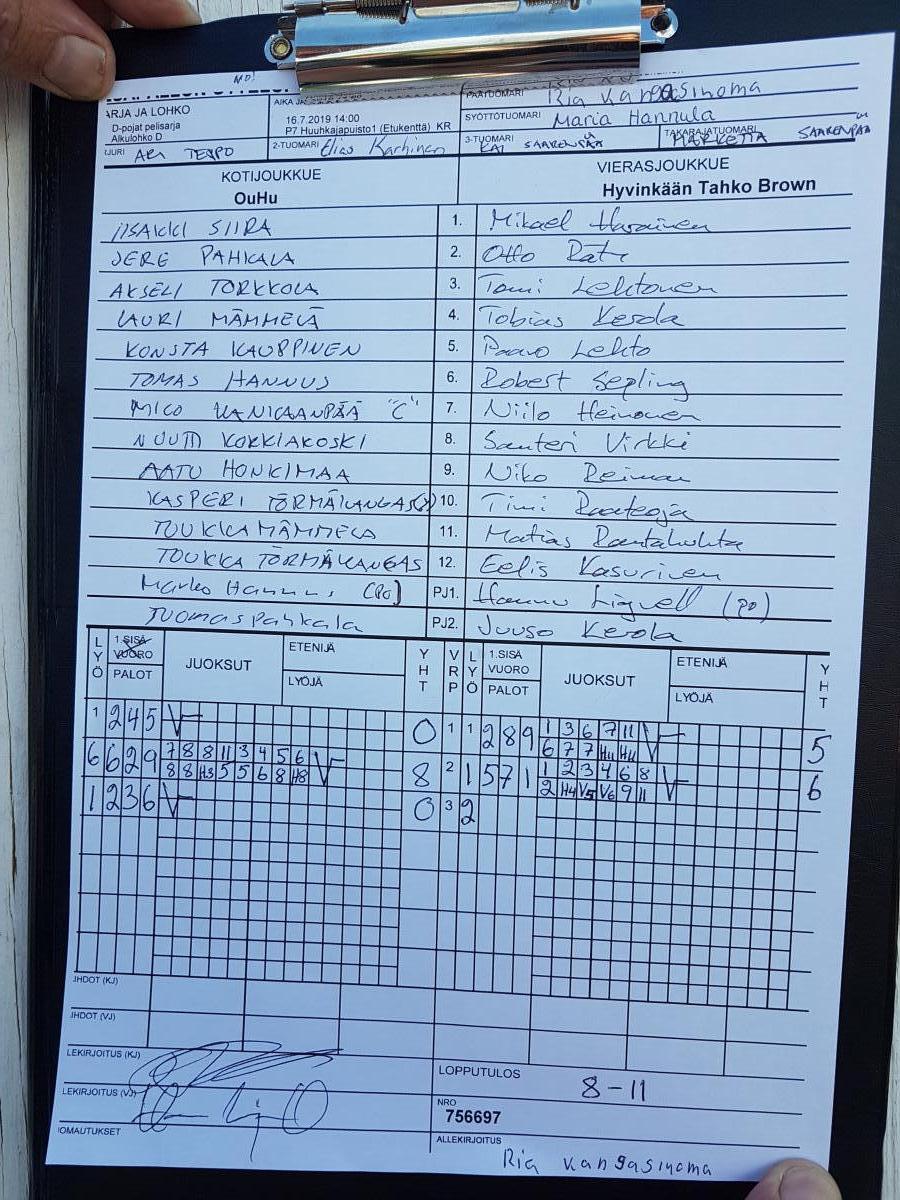 MO!
ARJA JA LOHKO
D-pojat pelisarja
Alkulohko D
AIKA JA
16.7.2019 14:00
P7 Huuhkajapuisto1 (Etukenttä) KR
PÄÄTUOMARI Ria Kangasinoma
SYÖTTÖTUOMARI Maria Hannula
JURI ARI TERPO
2-TUOMARI Elias Karhinen
3-TUOMARI KAI SAARENPÄÄ
TAKARAJATUOMARI MARKETTA SAARENPÄÄ
KOTIJOUKKUE VIERASJOUKKUE
OuHu Hyvinkään Tahko Brown
IISAKKI SIIRA 1. Mikael
JERE PAHKALA 2. Otto Räty
AKSELI TORKKOLA 3. Tomi Lehtonen
LAURI MÄMMELÄ 4. Tobias Kerola
KONSTA KAUPPINEN 5. Paavo Lehto
TOMAS HANNUS 6. Robert Sepling
MICO VANIKAANPÄÄ "C" 7. Niilo Heinonen
NUUTTI KORKIAKOSKI 8. Santeri Virkki
AATU HONKIMAA 9. Niko Reiman
KASPERI TÖRMÄKANGAS 10. Timi Raateoja
TOUKKA MÄMMELÄ 11. Matias Rantahuhta
TOUKKA TÖRMÄKANGAS 12. Eelis Kasurinen
Marko Hannus (PO) PJ1. Hannu Liguell (PO)
TUOMAS Pahkala PJ2. Juuso Kerola
LYÖ 1.SISÄ VUORO PALOT JUOKSUT ETENIJÄ LYÖJÄ YHT VRP LYÖ 1.SISÄ VUORO PALOT JUOKSUT ETENIJÄ LYÖJÄ YHT
1 2 4 5 0 1 1 2 8 9 1 3 6 7 11 5
6 7 7 H4 H4
6 6 2 9 7 8 8 11 3 4 5 6 8 2 1 5 7 1 1 2 3 4 6 8 6
8 8 H3 5 5 6 8 H8 2 H4 V5 V6 9 11
1 2 3 6 0 3 2
JHDOT (KJ)
JHDOT (VJ)
LEKIRJOITUS (KJ)
LOPPUTULOS 8-11
LEKIRJOITUS (VJ)
NRO
756697
OMAUTUKSET
ALLEKIRJOITUS
Ria Kangasinoma